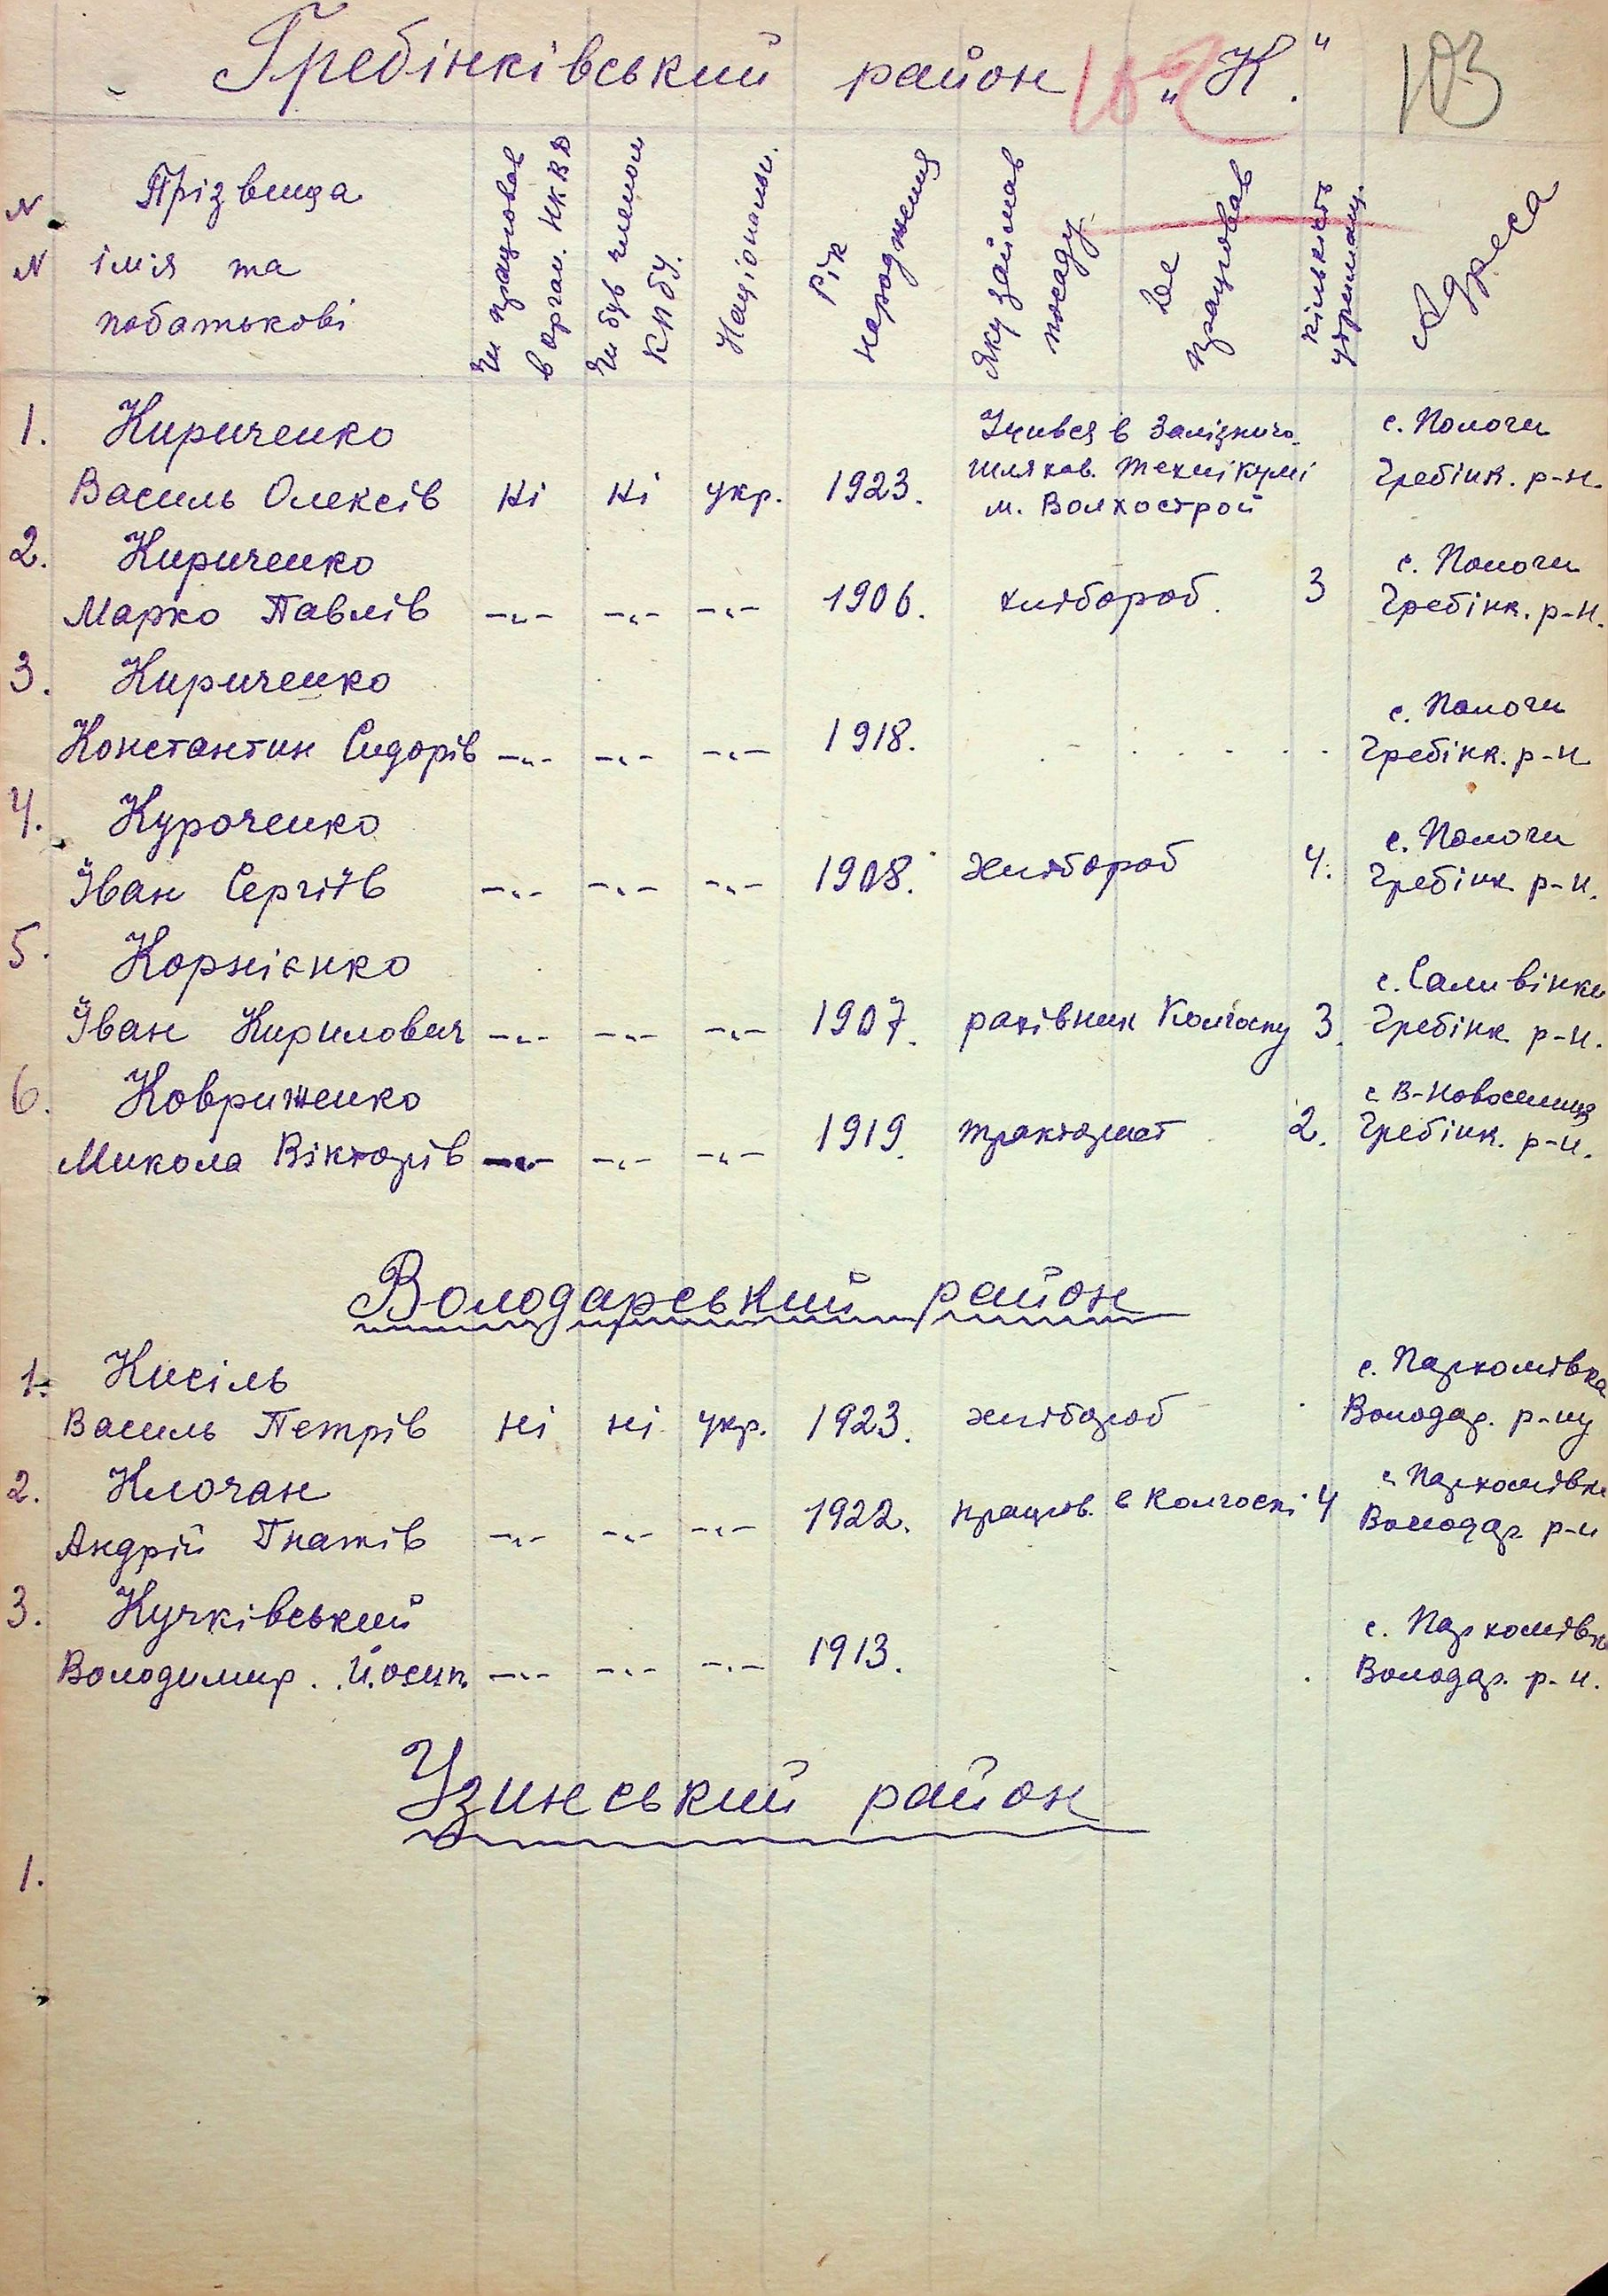 Гребінківський район „К." 103
102
N N Прізвища імія та побатькові
Чи працював в орган. НКВД
Чи був членом КПбУ.
Національн.
Рік народження
Яку займав посаду
Де працював
кількість утриманц.
Адреса
1. Кириченко Учився в Залізнично- с. Пологи
Василь Олексів ні ні укр. 1923. шляхов. технікумі Гребінк. р-н.
м. Волхострой
2. Кириченко с. Пологи
Марко Павлів —„— —„— —„— 1906. хлібороб. 3 Гребінк. р-н.
3. Кириченко с. Пологи
Константин Сидорів —„— —„— —„— 1918. Гребінк. р-н
4. Куроченко с. Пологи
Іван Сергіїв —„— —„— —„— 1908. хлібороб 4. Гребінк р-н.
5. Корнієнко с. Саливінки
Іван Кирилович —„— —„— —„— 1907. рахівник Колгоспу 3. Гребінк. р-н.
6. Ковриженко с. В-Новоселиця
Микола Вікторів —„— —„— —„— 1919. тракторист 2. Гребінк. р-н.
Володарський район
1. Кисіль с. Пархомівка
Василь Петрів ні ні укр. 1923. хлібороб Володар. р-ну
2. Клочан с. Пархомівка
Андрій Гнатів —„— —„— —„— 1922. працюв. в колгоспі 4 Володар р-н
3. Кучківський с. Пархомівк
Володимир. Йосип. —„— —„— —„— 1913. Володар. р-н.
Узинський район
1.